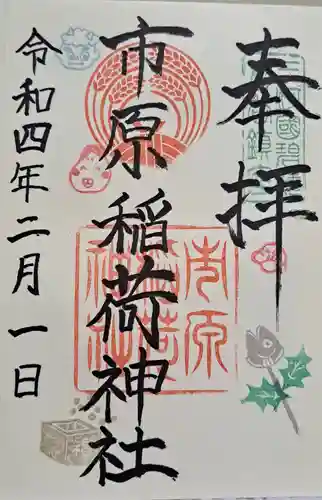 奉拝
市原稲荷神社
令和四年二月一日
市原
稲荷
神社